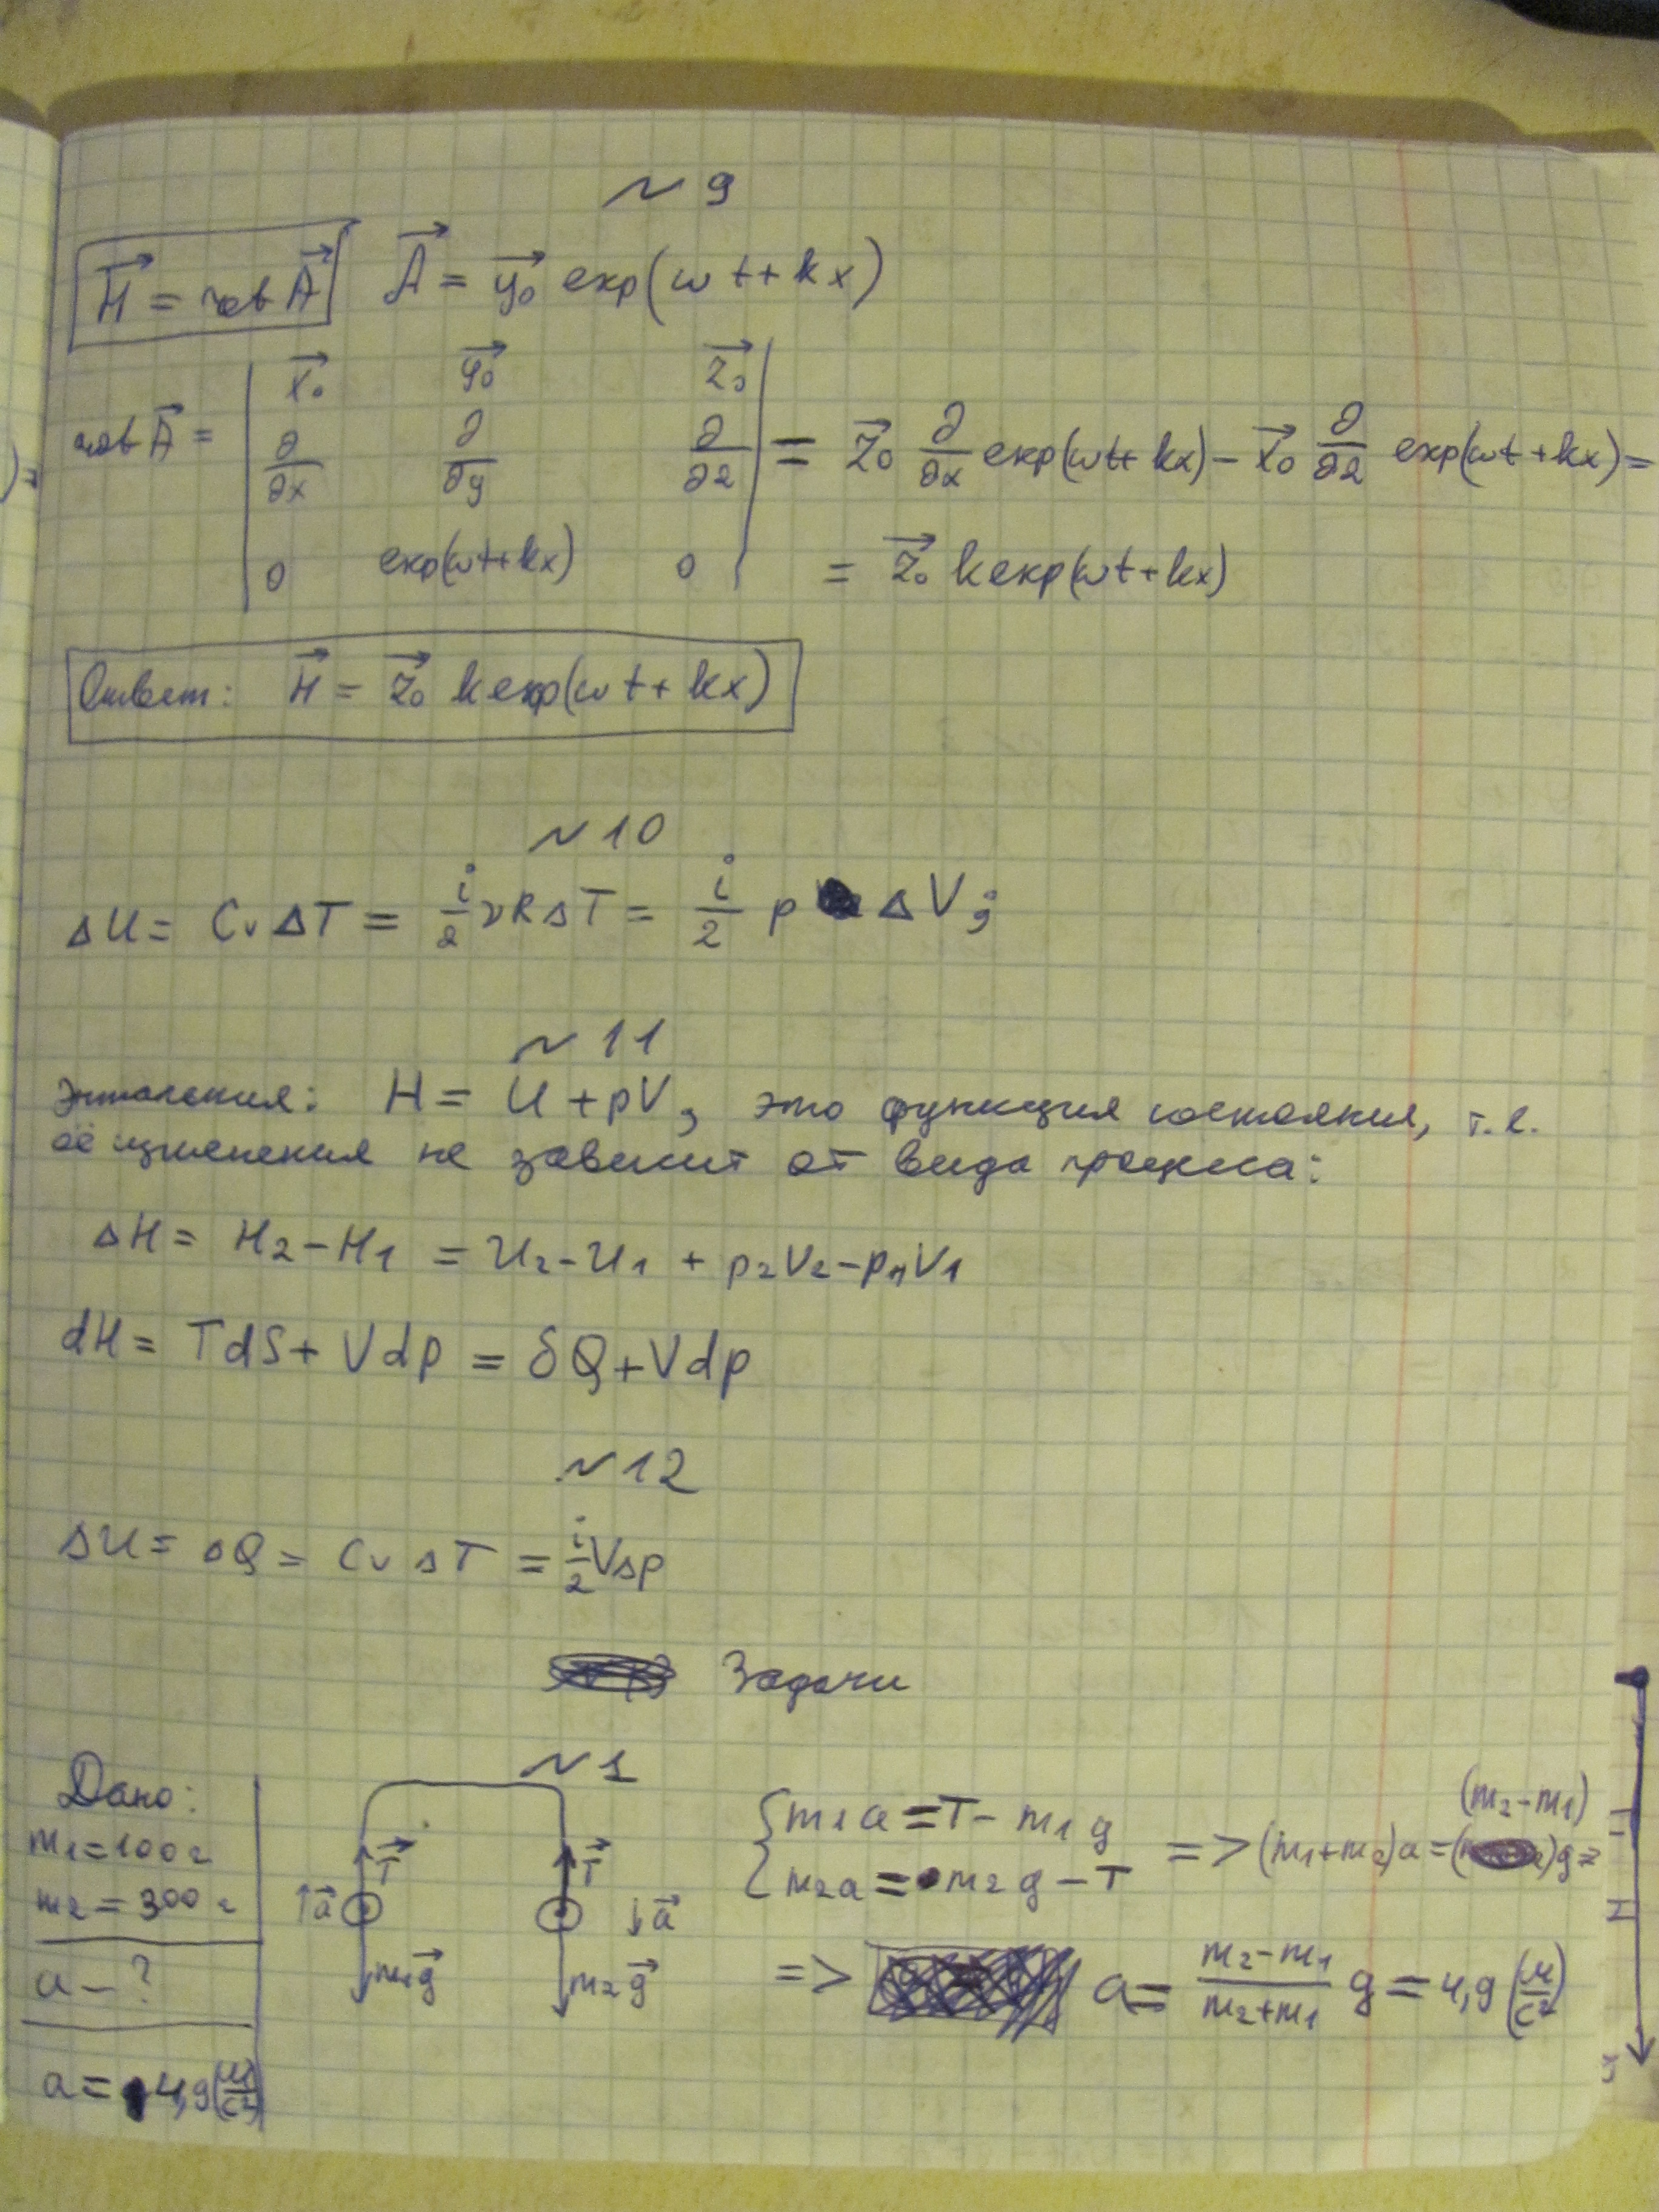 ~ 9
H⃗ = rot A⃗   A⃗ = y⃗₀ exp(ωt+kx)
rot A⃗ = | x⃗₀   y⃗₀   z⃗₀ |
| ∂/∂x   ∂/∂y   ∂/∂z | = z⃗₀ ∂/∂x exp(ωt+kx) − x⃗₀ ∂/∂z exp(ωt+kx) =
| 0   exp(ωt+kx)   0 | = z⃗₀ k exp(ωt+kx)
Ответ: H⃗ = z⃗₀ k exp(ωt+kx)
~ 10
ΔU = Cv ΔT = i/2 νRΔT = i/2 p ΔV;
~ 11
Энтальпия: H = U + pV, это функция состояния, т.е.
её изменения не зависит от вида процесса:
ΔH = H₂ − H₁ = U₂ − U₁ + p₂V₂ − p₁V₁
dH = TdS + Vdp = δQ + Vdp
~ 12
ΔU = ΔQ = Cv ΔT = i/2 VΔp
Задачи
~ 1
Дано:
m₁ = 100 г
m₂ = 300 г
a − ?
a = 4,9 (м/с²)
T⃗   T⃗
↑a⃗   ↓a⃗
m₁g⃗   m₂g⃗
{ m₁a = T − m₁g
{ m₂a = m₂g − T   => (m₁+m₂)a = (m₂−m₁)g =
=> a = (m₂−m₁)/(m₂+m₁) g = 4,9 (м/с²)